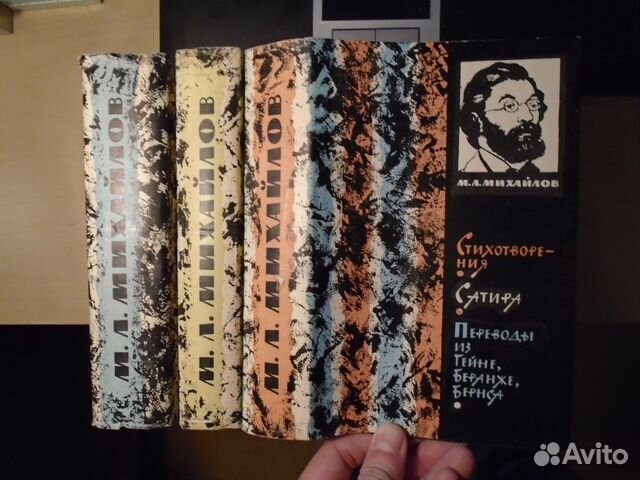 М. Л. МИХАЙЛОВ
М. Л. МИХАЙЛОВ
М. Л. МИХАЙЛОВ
М.Л.МИХАЙЛОВ
СТИХОТВОРЕ-
НИЯ
САТИРА
ПЕРЕВОДЫ
ИЗ
ГЕЙНЕ,
БЕРАНЖЕ,
БЕРНСА
Avito